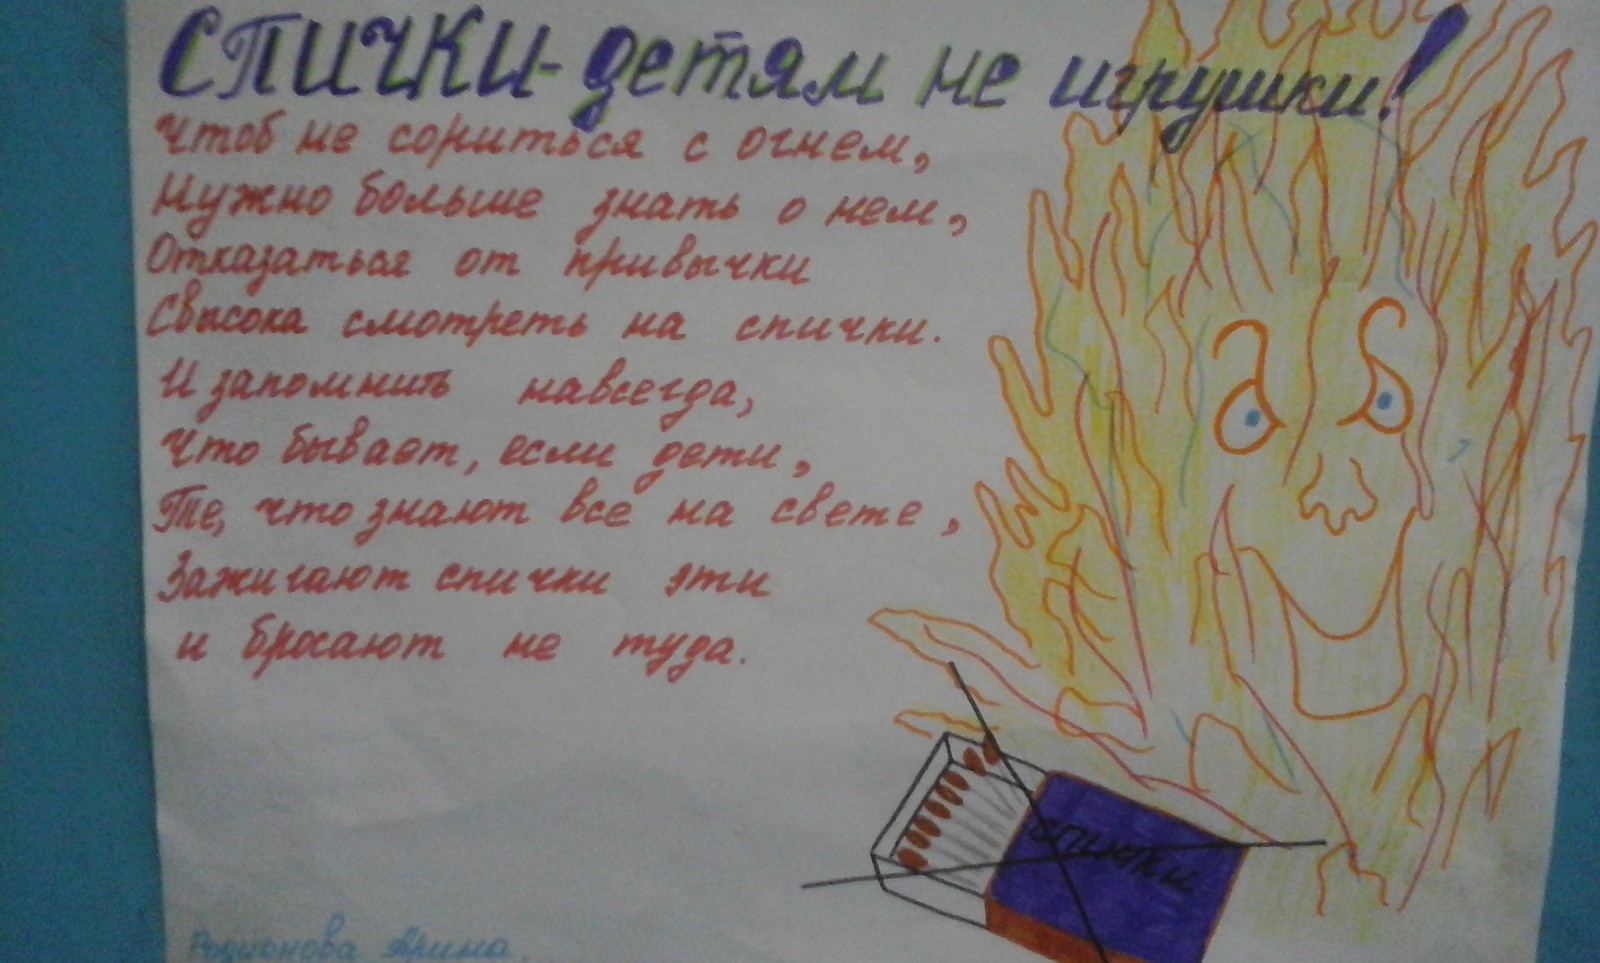 Спички - детям не игрушки!
Чтоб не сориться с огнем,
Нужно больше знать о нем,
Отказаться от привычки
Свысока смотреть на спички.
И запомнить навсегда,
Что бывает, если дети,
Те, что знают все на свете,
Зажигают спички эти
и бросают не туда.
спички
Родионова Арина.